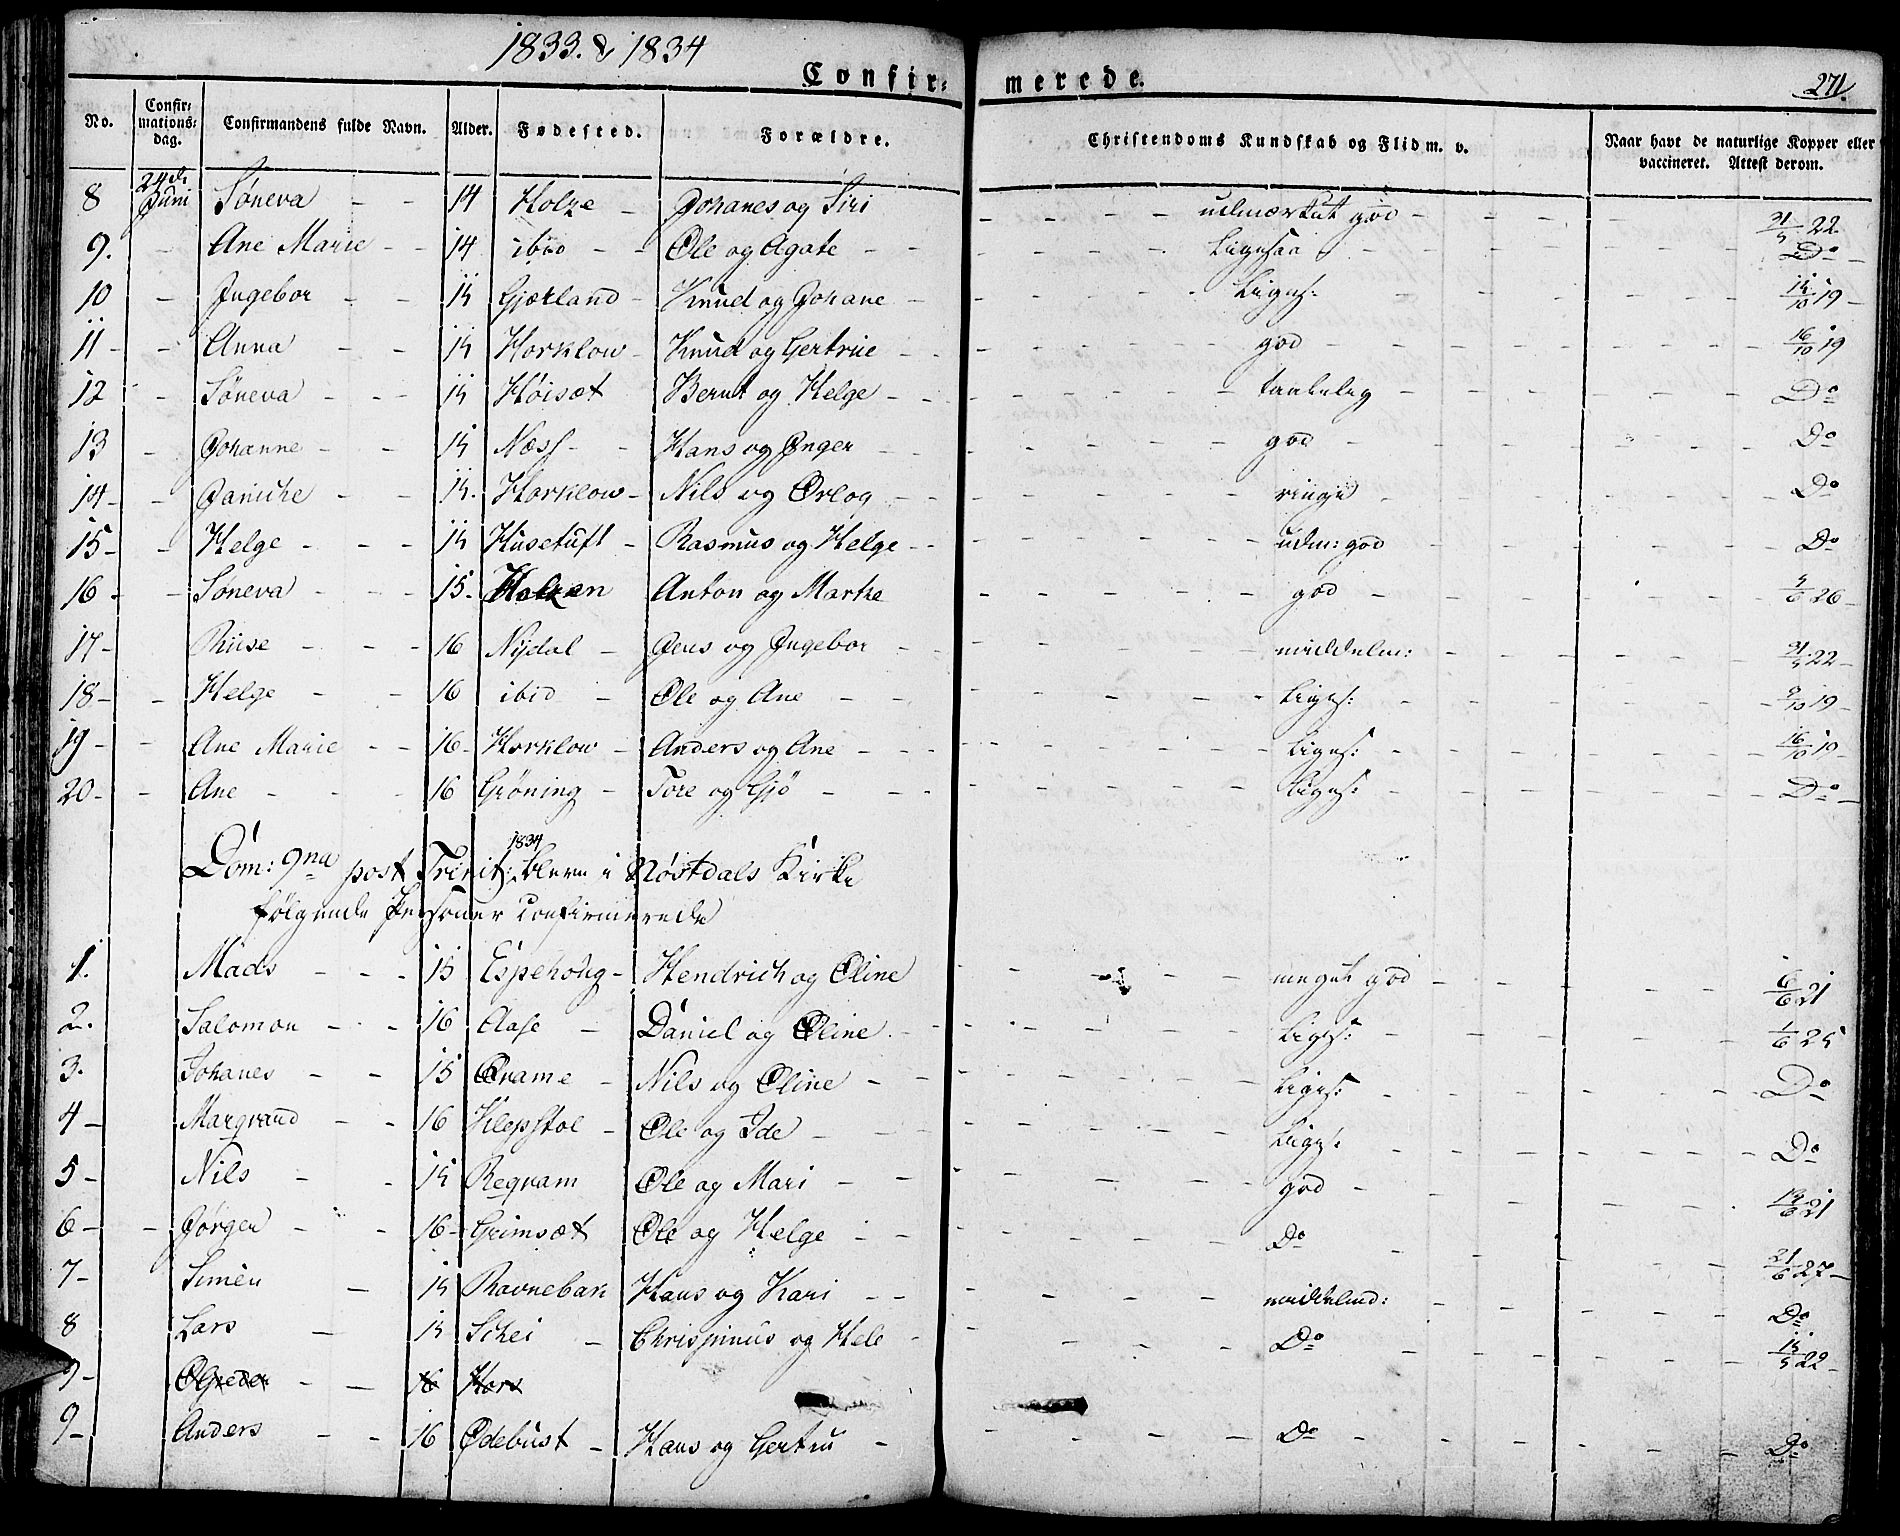 1833. & 1834
Confir- merede. 271.
No. Confir-mations-dag. Confirmandens fulde Navn. Alder. Fødested. Forældre. Christendoms Kundskab og Flid m. v. Naar havt de naturlige Kopper eller vaccineret. Attest derom.
8 24de Juni Søneva - - 14 Holze - Johanes og Siri - - - - udmærket god - - - 31/5 22.
9. Ane Marie - - 14 ibid - - Ole og Agate - - - - - - Ligesaa - - - Do -
10 - Ingebor - - 15 Gjætland - Knud og Johane - - - - - - Liges: - - - 15/10 19 -
11 - - Anna - - 15 Horklow - Knud og Gertrue - - - - - god - - - 16/10 19
12 - Søneva - - - 15 Høisæt Bernt og Helge - - - - - taalelig - - - Do
13 - Johanne - - 15 Næss - - Hans og Inger - - - - - god - - - Do
14 - - Janiche - - 15. Horklow - Nils og Ørlog - - - - - ringe - - - Do
15 - - Helge - - - 15 Husetuft - Rasmus og Helge - - - - - udm: god - - - Do
16 - - Søneva - - - 15. Holzen Anton og Marthe - - - - god - - - 5/6 26 -
17 - Riise - - - 16 Nydal - Jens og Ingebor - - - - - middelm: - - - 31/5 22 -
18 - - Helge - - 16 ibid - Ole og Ane - - - - - Liges: - - - 9/10 19 -
19 - - Ane Marie - - 16 - Horklow - Anders og Ane - - - - - Liges: - - - 16/10 19
20 - - Ane - - - 16 Grøning - Tore og Gjø - - - - - Liges: - - - Do -
1834
Dom: 9na post Trinit: bleve i Nøstdals Kirke
følgende Personer confirmerede
1. Mads - - - 15 Espehoug - Hendrich og Oline - - - - meget god - - - 6/6 21
2. Salomon - - 16 Aase - Daniel og Oline. - - - - Liges: - - - 1/6 25
3. Johanes - - 15 Qvame - Nils og Oline - - - - - Liges: - - - Do
4 - Margrand - - 16 Klepstol - Ole og Ide - - - - - Liges: - - - Do
5 - Nils - - 15 Regnam Ole og Mari - - - - - god - - - 12/6 21
6 - - Jørgen - - 16 - Grimsæt Ole og Helge - - - - - Do - - - 21/6 27 -
7 - Simen - 15 Ravnebak Hans og Kari - - - - - middelmd: - - - Do
8 Lars - 15 Schei - Chrispinus og Hele - - - - Do - - - 15/5 22 -
9 - - - 16 Hors
9 - Anders - - 16 Ødebust - Hans og Gertru - - - - Do - - - Do